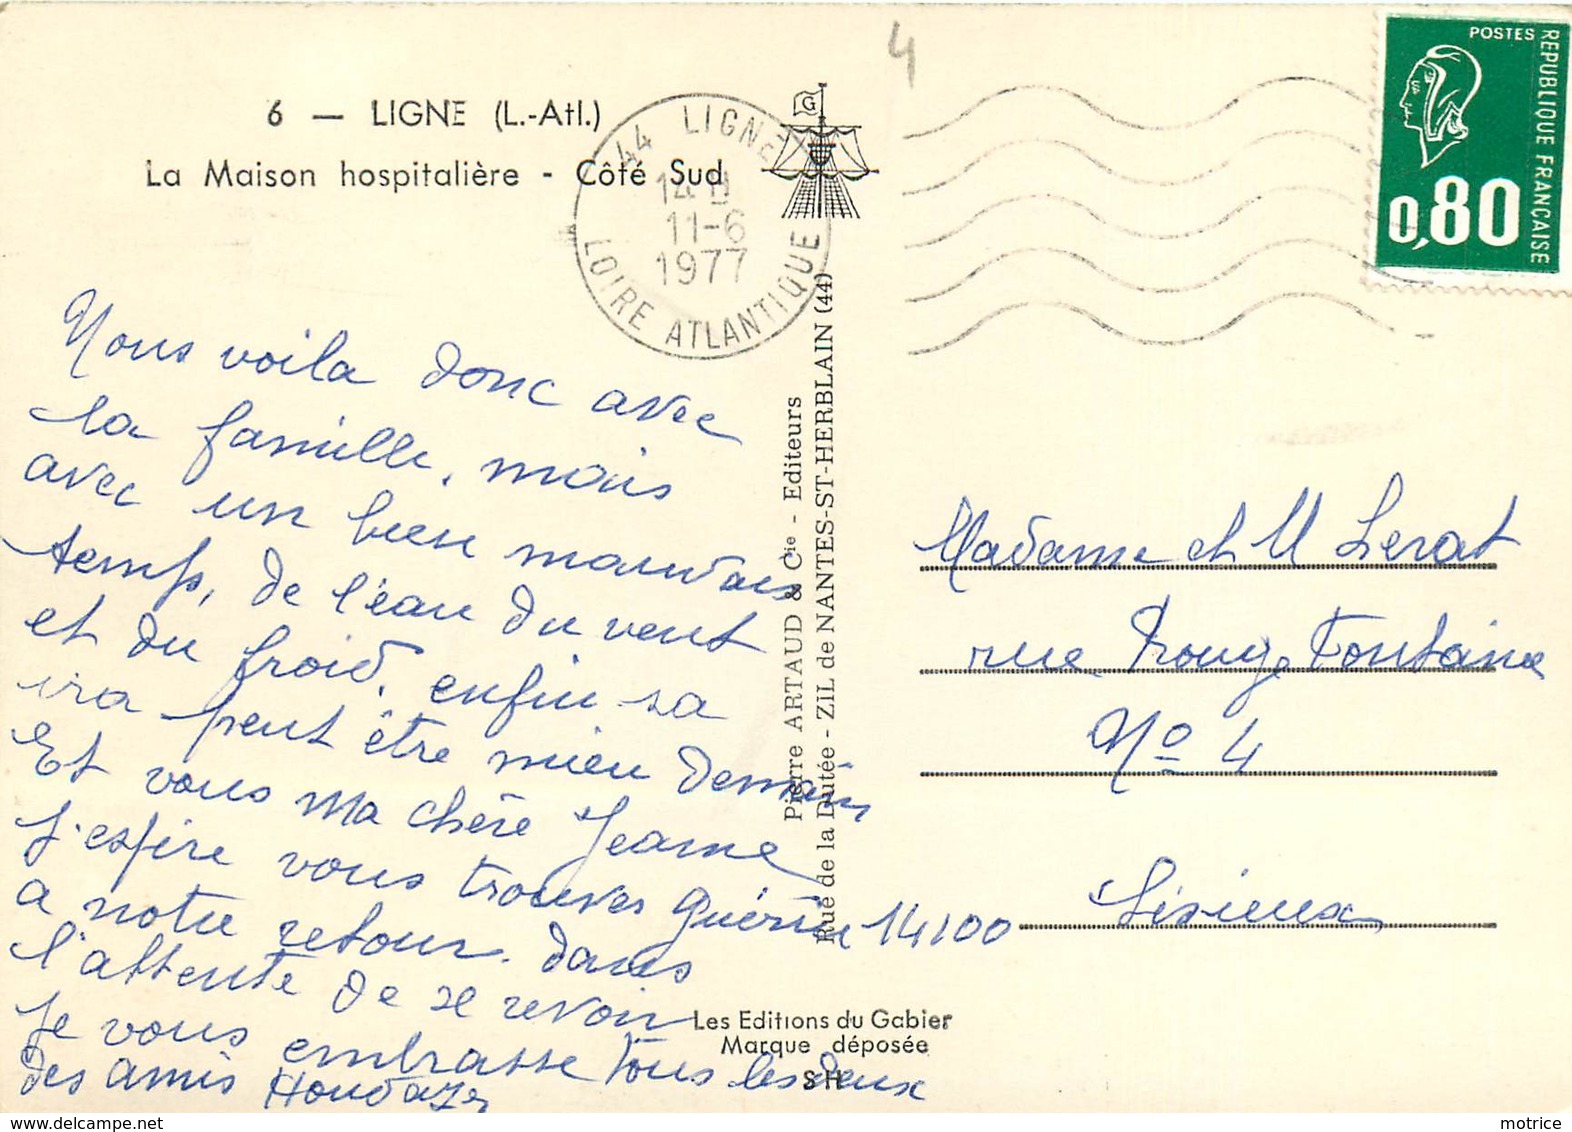 6 — LIGNE (L.-Atl.)
La Maison hospitalière - Côté Sud
4
G
44 LIGNE
14 H
11-6
1977
LOIRE ATLANTIQUE
POSTES
REPUBLIQUE FRANÇAISE
0,80
Nous voila donc avec
la famille, mais
avec un bien mauvais
temps, de l'eau du vent
et du froid, enfin sa
ira peut être mieu demain
Et vous ma chère Jeanne
J'espère vous trouver guérie
a notre retour. dans
l'attente de se revoir
Je vous embrasse tous les deux
des amis
Pierre ARTAUD & Cie - Editeurs
Rue de la Dutée - ZIL de NANTES-ST-HERBLAIN (44)
Madame et M Lerat
rue Rouge Fontaine
No 4
14100 Lisieux
Les Editions du Gabier
Marque déposée
S H
motrice